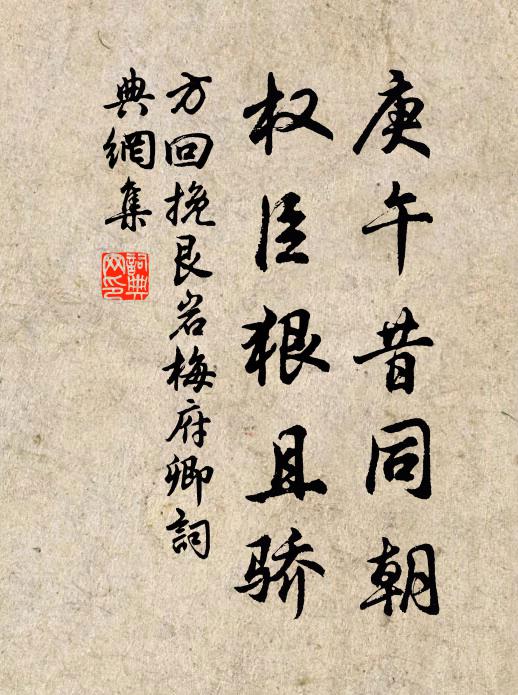 庚午昔同朝
权臣狠且骄
方回挽艮岩梅府卿詞
典網集
詞典网印